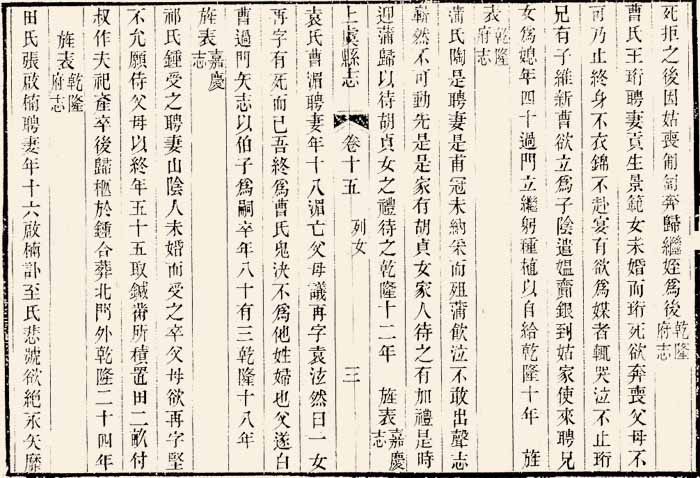 死拒之後因姑喪匍匐奔歸繼姪爲後乾隆府志
曹氏王珩聘妻貢生景範女未婚而珩死欲奔喪父母不
可乃止終身不衣錦不赴宴有欲爲媒者輒哭泣不止珩
兄有子維新曹欲立爲子陰遣媼齎銀到姑家使來聘兄
女爲媳年四十過門立繼躬種植以自給乾隆十年 旌
表乾隆府志
蒲氏陶是聘妻是甫冠未納采而殂蒲飲泣不敢出聲志
嶄然不可動先是是家有胡貞女家人待之有加禮是時
迎蒲歸以待胡貞女之禮待之乾隆十二年 旌表嘉慶志
上虞縣志 卷十五 列女 三
袁氏曹湄聘妻年十八湄亡父母議再字袁泫然曰一女
再字有死而已吾終爲曹氏鬼決不爲他姓婦也父遂白
曹過門矢志以伯子爲嗣卒年八十有三乾隆十八年
旌表嘉慶志
祁氏鍾受之聘妻山陰人未婚而受之卒父母欲再字堅
不允願侍父母以終年五十五取鍼黹所積置田二畝付
叔作夫祀產卒後歸柩於鍾合葬北門外乾隆二十四年
旌表乾隆府志
田氏張啟楠聘妻年十六啟楠訃至氏悲號欲絕永矢靡